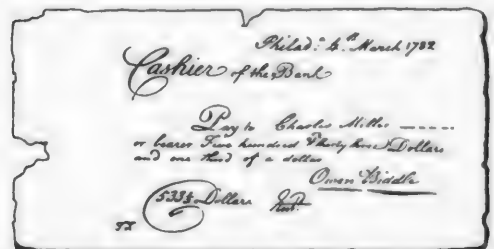 Philad.ª 4.th March 1782
Cashier of the Bank
Pay to Charles Miller
or bearer Five hundred Thirty three Dollars
and one third of a dollar
Owen Biddle
533⅓ Dollars